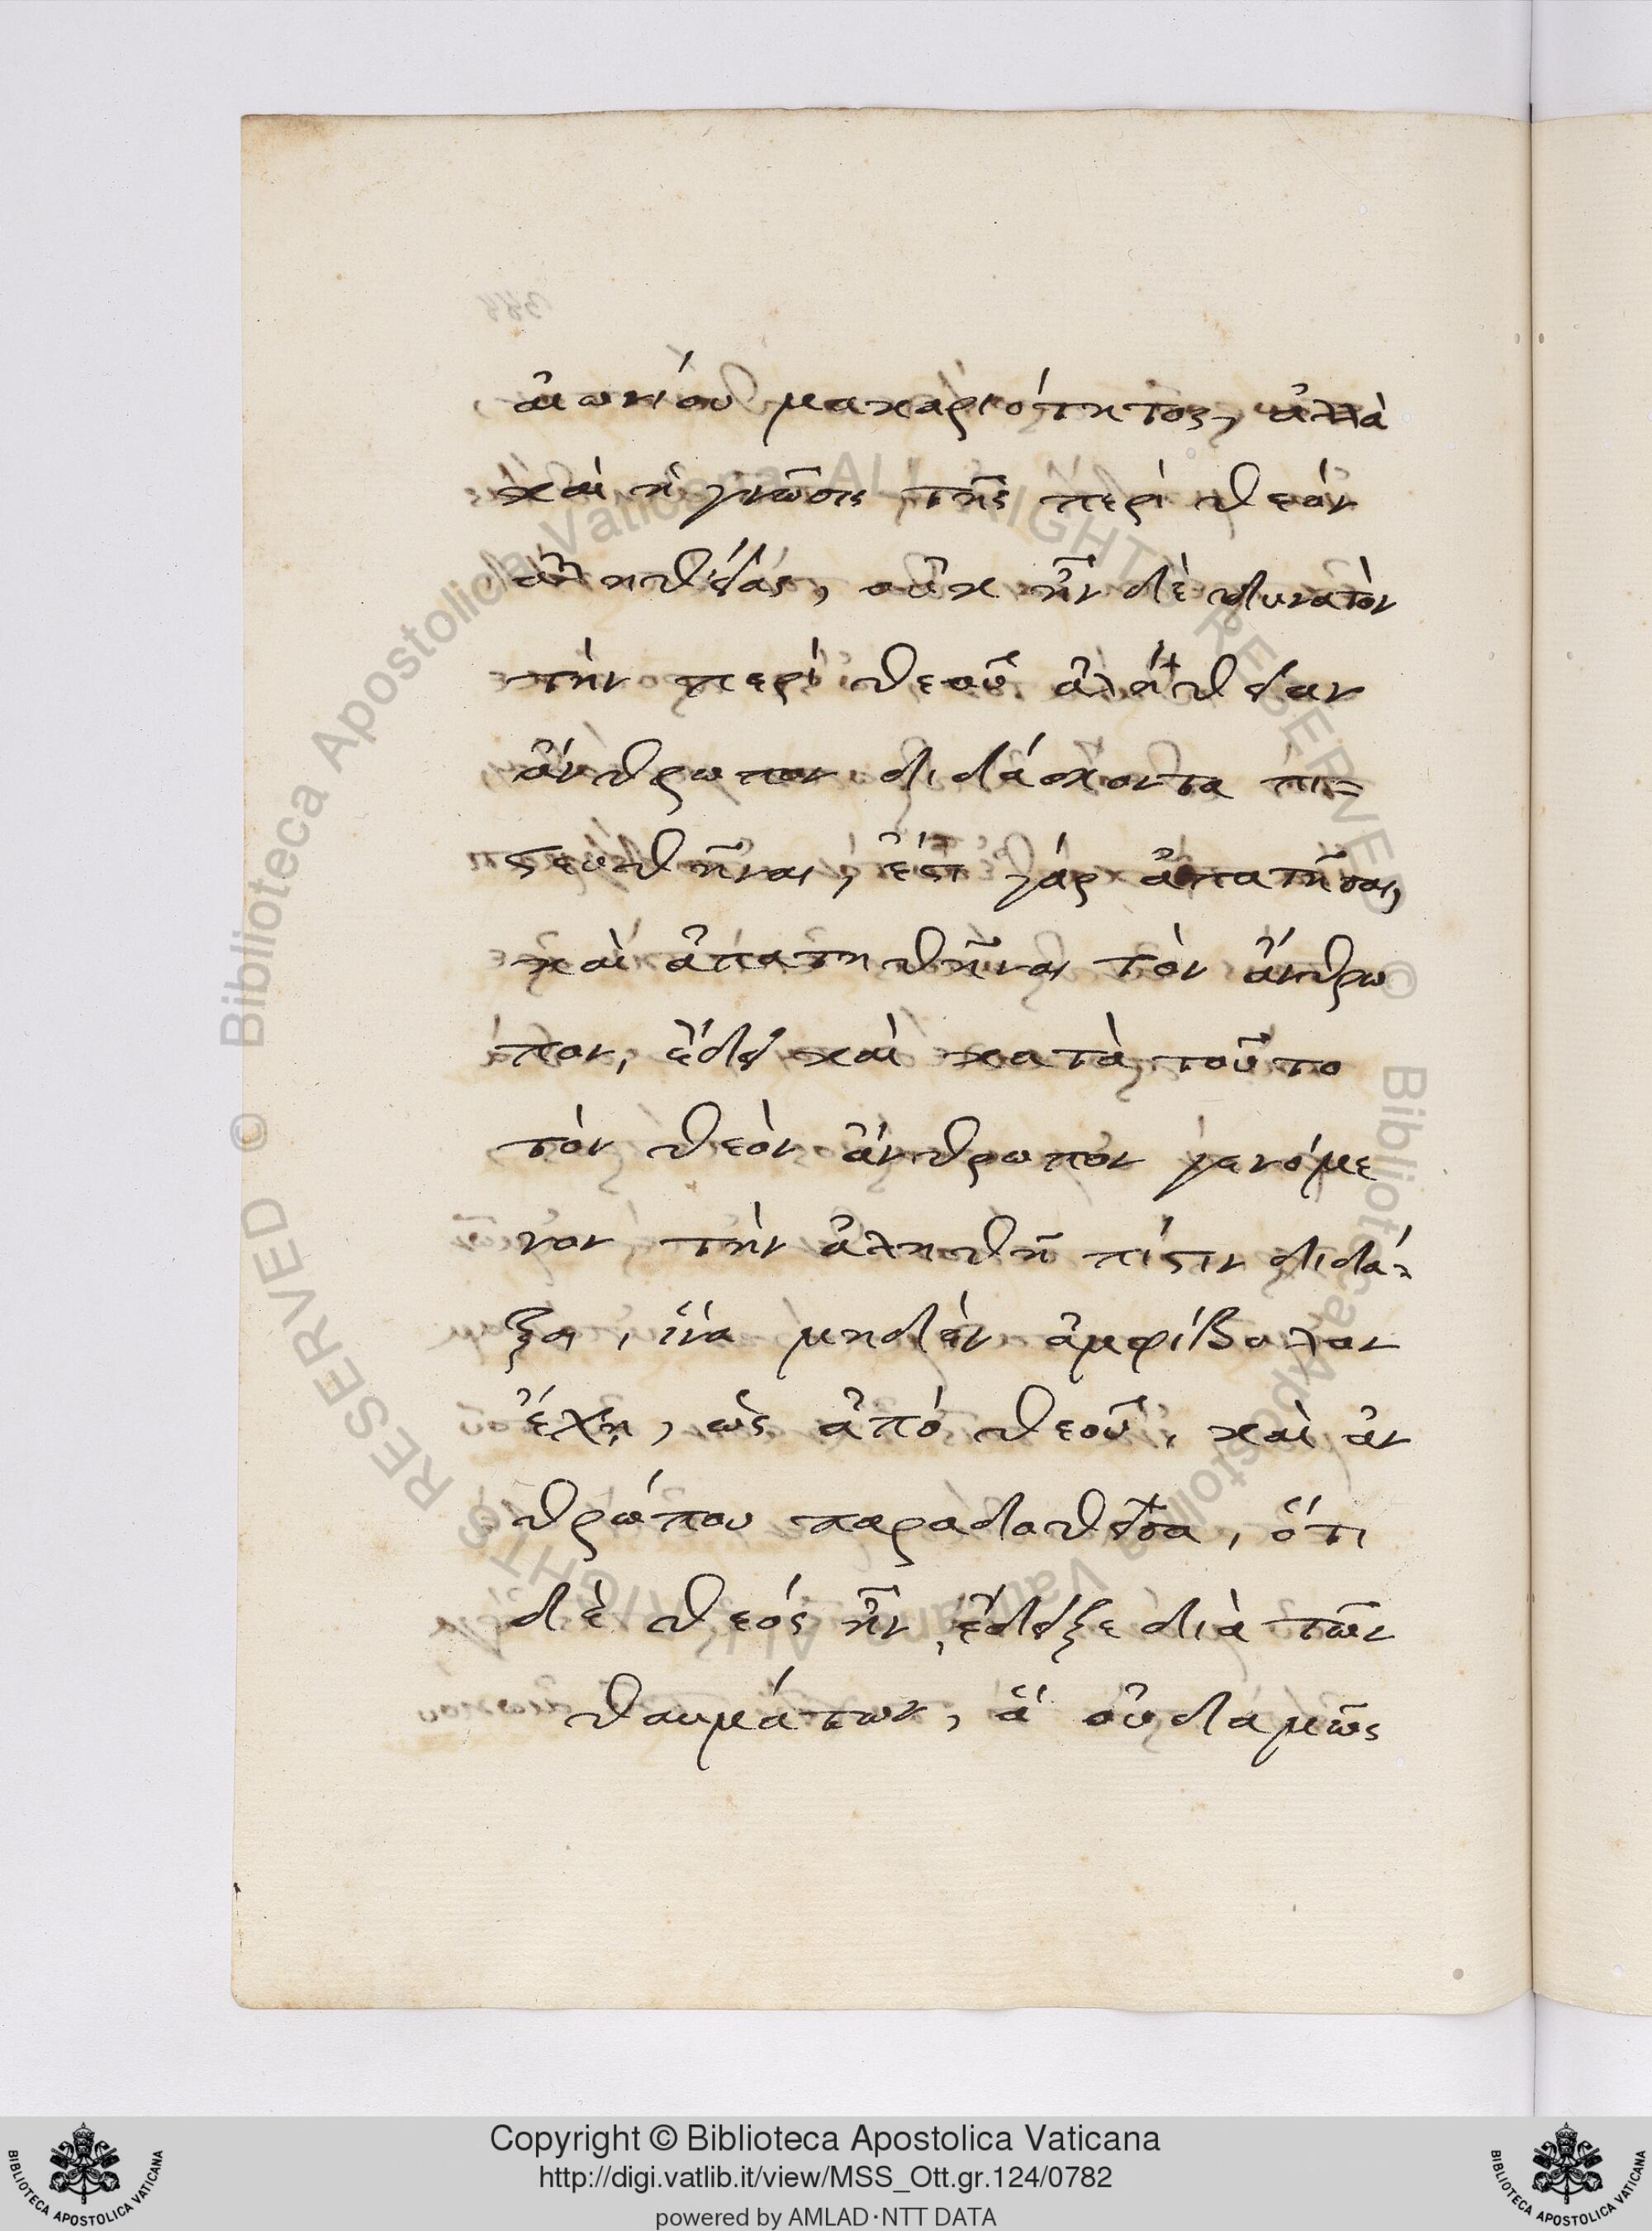 αἰωνίου μακαριότητος, ἀλλὰ
καὶ ἡ γνῶσις τῆς περὶ θεὸν
ἀληθείας, οὐκ ἦν δὲ δυνατὸν
τὴν περὶ θεοῦ ἀλήθειαν
ἄνθρωπον διδάσκοντα πι=
στευθῆναι, ἔστι γὰρ ἀπατῆσαι,
καὶ ἀπατηθῆναι τὸν ἄνθρω
πον, ἔδει καὶ κατὰ τοῦτο
τὸν θεὸν ἄνθρωπον γενόμε
νον τὴν ἀληθῆ πίστιν διδά-
ξαι, ἵνα μηδὲν ἀμφίβολον
ἔχῃ, ὡς ἀπὸ θεοῦ, καὶ ἀν
θρώπου παραδοθεῖσα, ὅτι
δὲ θεός ἦν, ἔδειξε διὰ τῶν
θαυμάτων, ἃ οὐδαμῶς
Copyright © Biblioteca Apostolica Vaticana
http://digi.vatlib.it/view/MSS_Ott.gr.124/0782
powered by AMLAD·NTT DATA
BIBLIOTECA APOSTOLICA VATICANA
BIBLIOTECA APOSTOLICA VATICANA
© Biblioteca Apostolica Vaticana ALL RIGHTS RESERVED
© Biblioteca Apostolica Vaticana ALL RIGHTS RESERVED